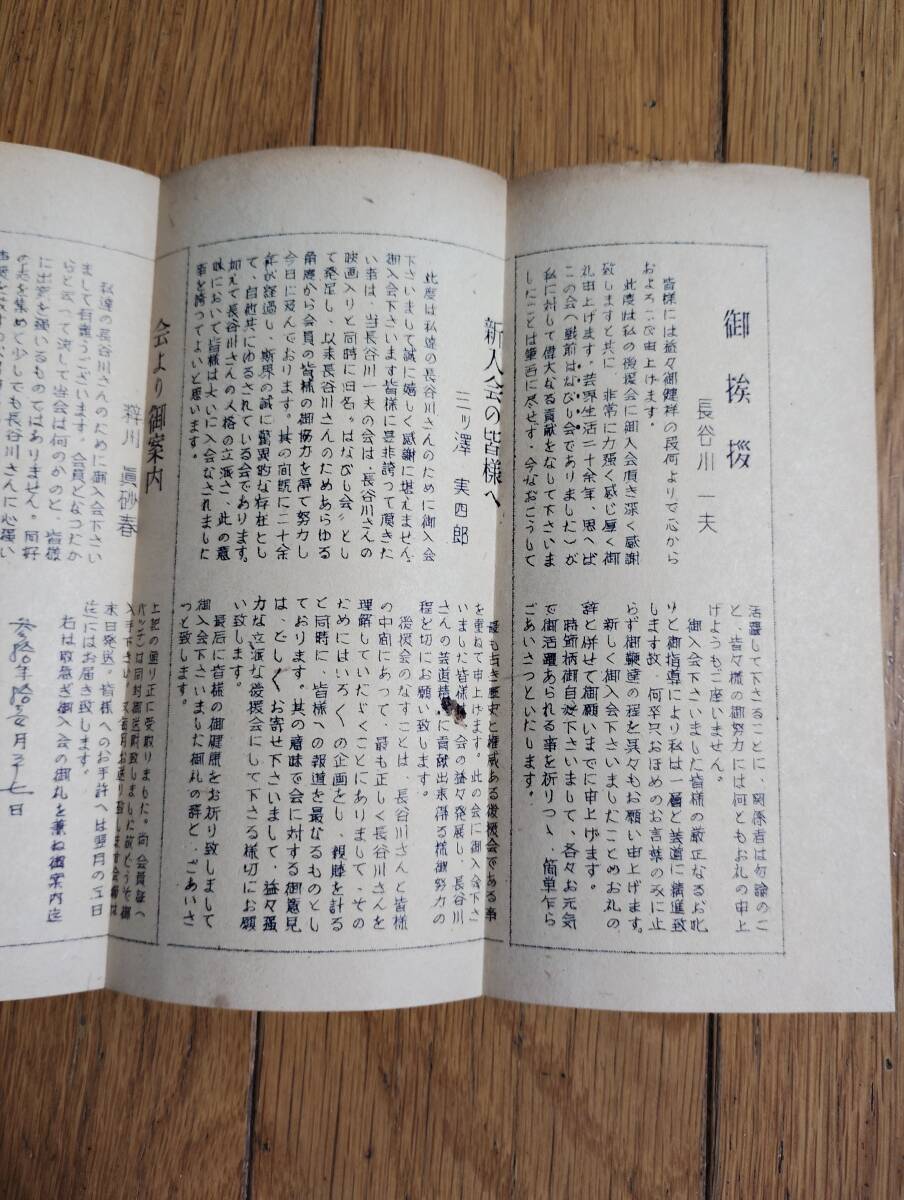 御挨拶
長谷川一夫
皆様には益々御健祥の段何よりで心から
およろこび申上げます。
此度は私の後援会に御入会頂き深く感謝
致しますと共に 非常に力強く感じ厚く御
礼申上げます。芸界生活二十余年、思へば
この会へ戦前はなびし会でありました)が
私に対して偉大なる貢献をなして下さいま
したことは筆画に尽せず、今なおこうして
活躍して下さることに、関係者は勿論のこ
と、皆々様の御努力には何ともお礼の申上
げようもご座いません。
御入会下さいました皆様の厳正なるお叱
りと御指導により私は一層と芸道に精進致
します故、何卒只おほめのお言葉のみに止
らず御鞭撻の程を呉々もお願い申上げます。
新しく御入会下さいましたことのお礼の
辞と併せて御願いまでに申上げます。
時節柄御自愛下さいまして、各々お元気
で御活躍あられる事を祈りつゝ、簡単乍ら
ごあいさつといたします。
新入会の皆様へ
三ッ澤 実四郎
此度は私達の長谷川さんのために御入会
下さいまして誠に嬉しく感謝に堪えません。
御入会下さいます皆様に是非誇って頂きた
い事は、当長谷川一夫の会は長谷川さんの
映画入りと同時に旧名〝はなびし会〟とし
て発足し、以来長谷川さんのためあらゆる
角度から会員の皆様の御協力を得て努力し
今日に及んでおります。其の間既に二十余
年が経過し、斯界の誠に驚異的な存在とし
て、自他共にゆるされている会であります。
加えて長谷川さんの人格の立派さ、此の意
味において皆様は大いに入会なされました
事を誇ってよいと思います。
最も古き歴史と権威ある後援会である事
を重ねて申上げます。此の会に御入会下さ
いました皆様、会の益々発展し、長谷川
さんの芸道精進に貢献出来得る様御努力の
程を切にお願い致します。
後援会のなすことは、長谷川さんと皆様
の中間にあって、最も正しく長谷川さんを
理解していたゞくことにありまして、その
ためにはいろ〱の企画をし、親睦を計る
と同時に、皆様への報道を最なるものとし
ております。其の意味で会に対する御意見
は、どし〱お寄せ下さいまして、益々強
力な立派な後援会にして下さる様切にお願
い致します。
最后に皆様の御健康をお祈り致しまして
御入会下さいました御礼の辞と、ごあいさ
つと致します。
会より御案内
粹川 眞砂春
私達の長谷川さんのために御入会下さい
まして有難うございます。会員となつたか
らと云って決して当会は何のかのと、皆様
に出資を強いるものではありません。同好
の志を集めて少しでも長谷川さんに心強い
上記の通り正に受取りました。尚会員証へ
バッヂ)は同封御送附致しました故どうぞ御
入手下さい。
末日発送、皆様へのお手許へは翌月の五日
迄にはお届き致します。
右は取急ぎ御入会の御礼を兼ね御案内迄